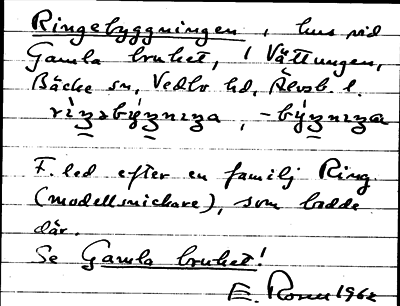 Ringebyggningen, hus vid
Gamla bruket, i Vättungen,
Bäcke sn, Vedbo hd, Älvsb. l.
F. led efter en familj Ring
(modellsnickare), som bodde
där.
Se Gamla bruket!
E. Rosen 1962